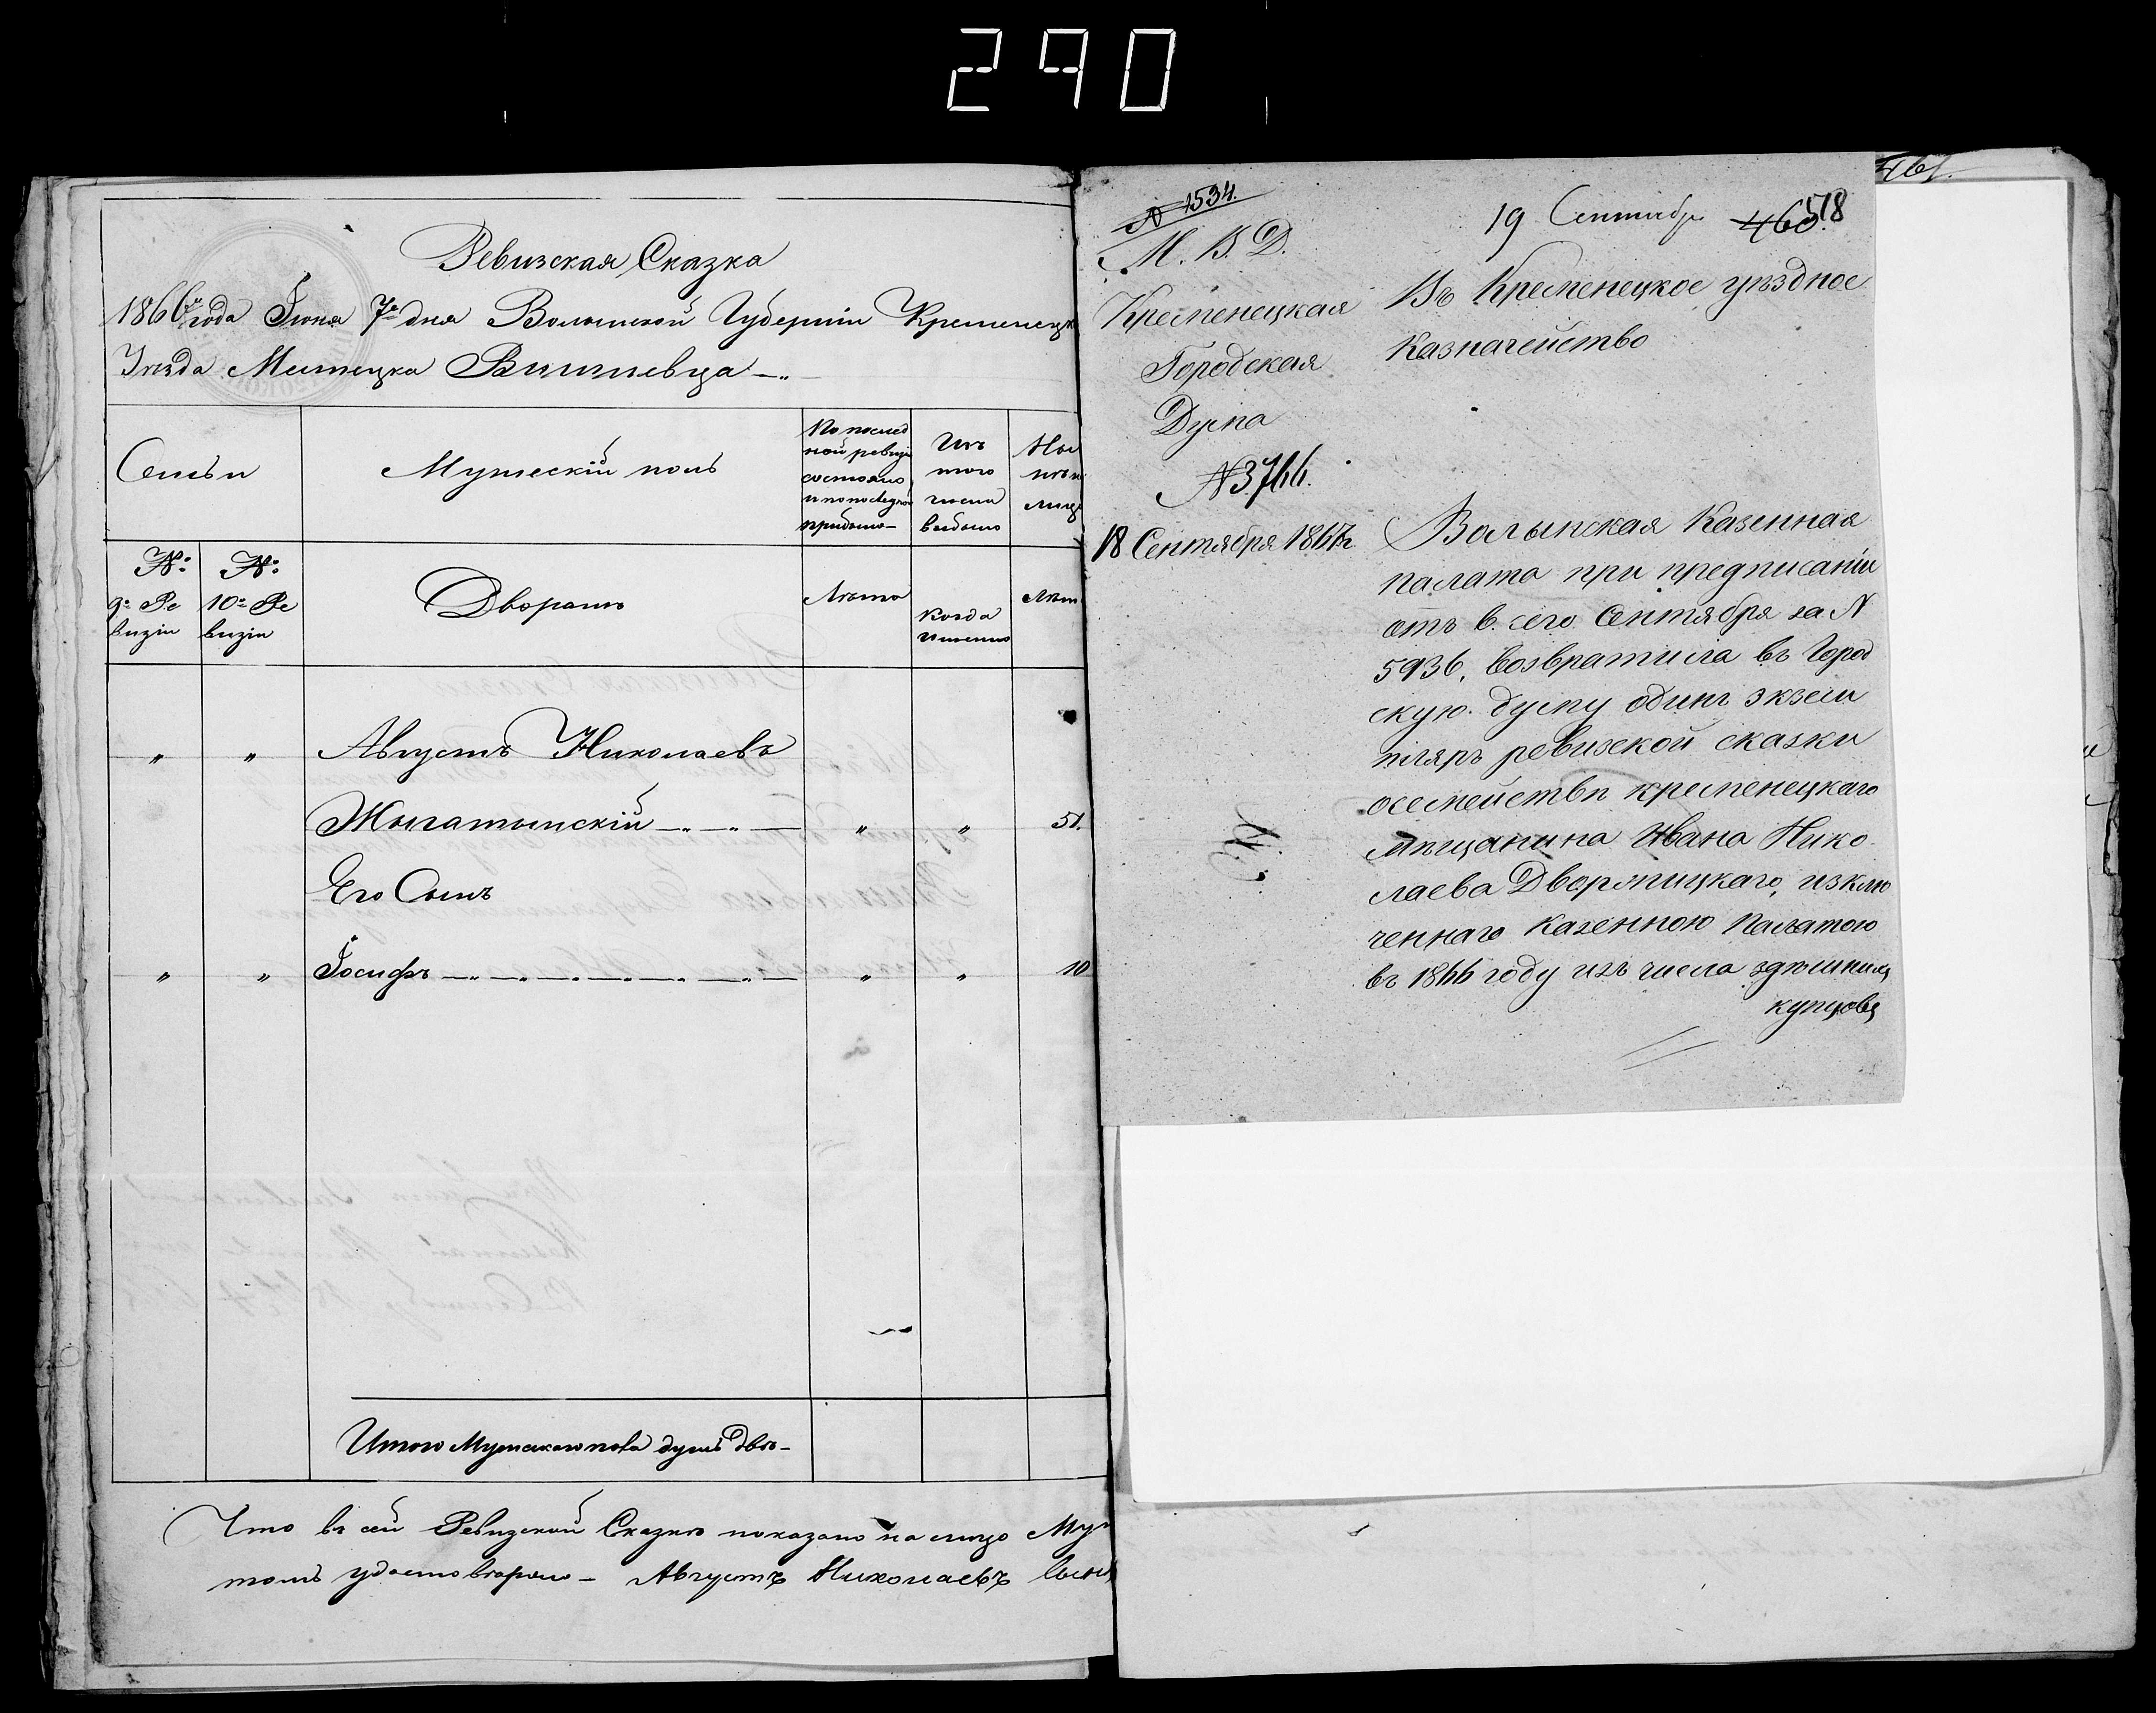 290
Ревизская Сказка
1866го года Іюня 7го дня Волынской Губерніи Кременецк
Уѣзда Мѣстечка Вишневца
Семьи
Мужескій полъ
По послед
ной ревизіи
состояло
и по последней
прибыло
Изъ
того
числа
выбыло
Ны
нѣ на
лицо
№:
9й Ре
визіи
№:
10й Ре
визіи
Дворянъ
Лѣта
Когда
именно
Лѣт
" " Августъ Николаевъ
" " 51.
Его Сынъ
" " Іосифъ " " 10
Итого Мужескаго пола душъ двѣ
Что въ сей Ревизской Сказкѣ показано на лицо Му
томъ удостовѣряю Августъ Николаевъ Сынъ
461.
№ 1534.
М. В. Д.
Кременецкая
Городская
Дума
№ 3766.
18 Сентября 1867г.
19 Сентябр 460. 518
Въ Кременецкое уѣздное
Казначейство
Волынская Казенная
палата при предписаніи
отъ 6. сего Сентября за N
5936, возвратила въ Город
скую думу одинъ экзем
пляръ ревизской сказки
о семействѣ кременецкаго
мѣщанина Ивана Нико
лаева Дворжицкаго, изклю
ченнаго Казенною Палатою
въ 1866 году изъ числа здѣшнихъ
купцовъ